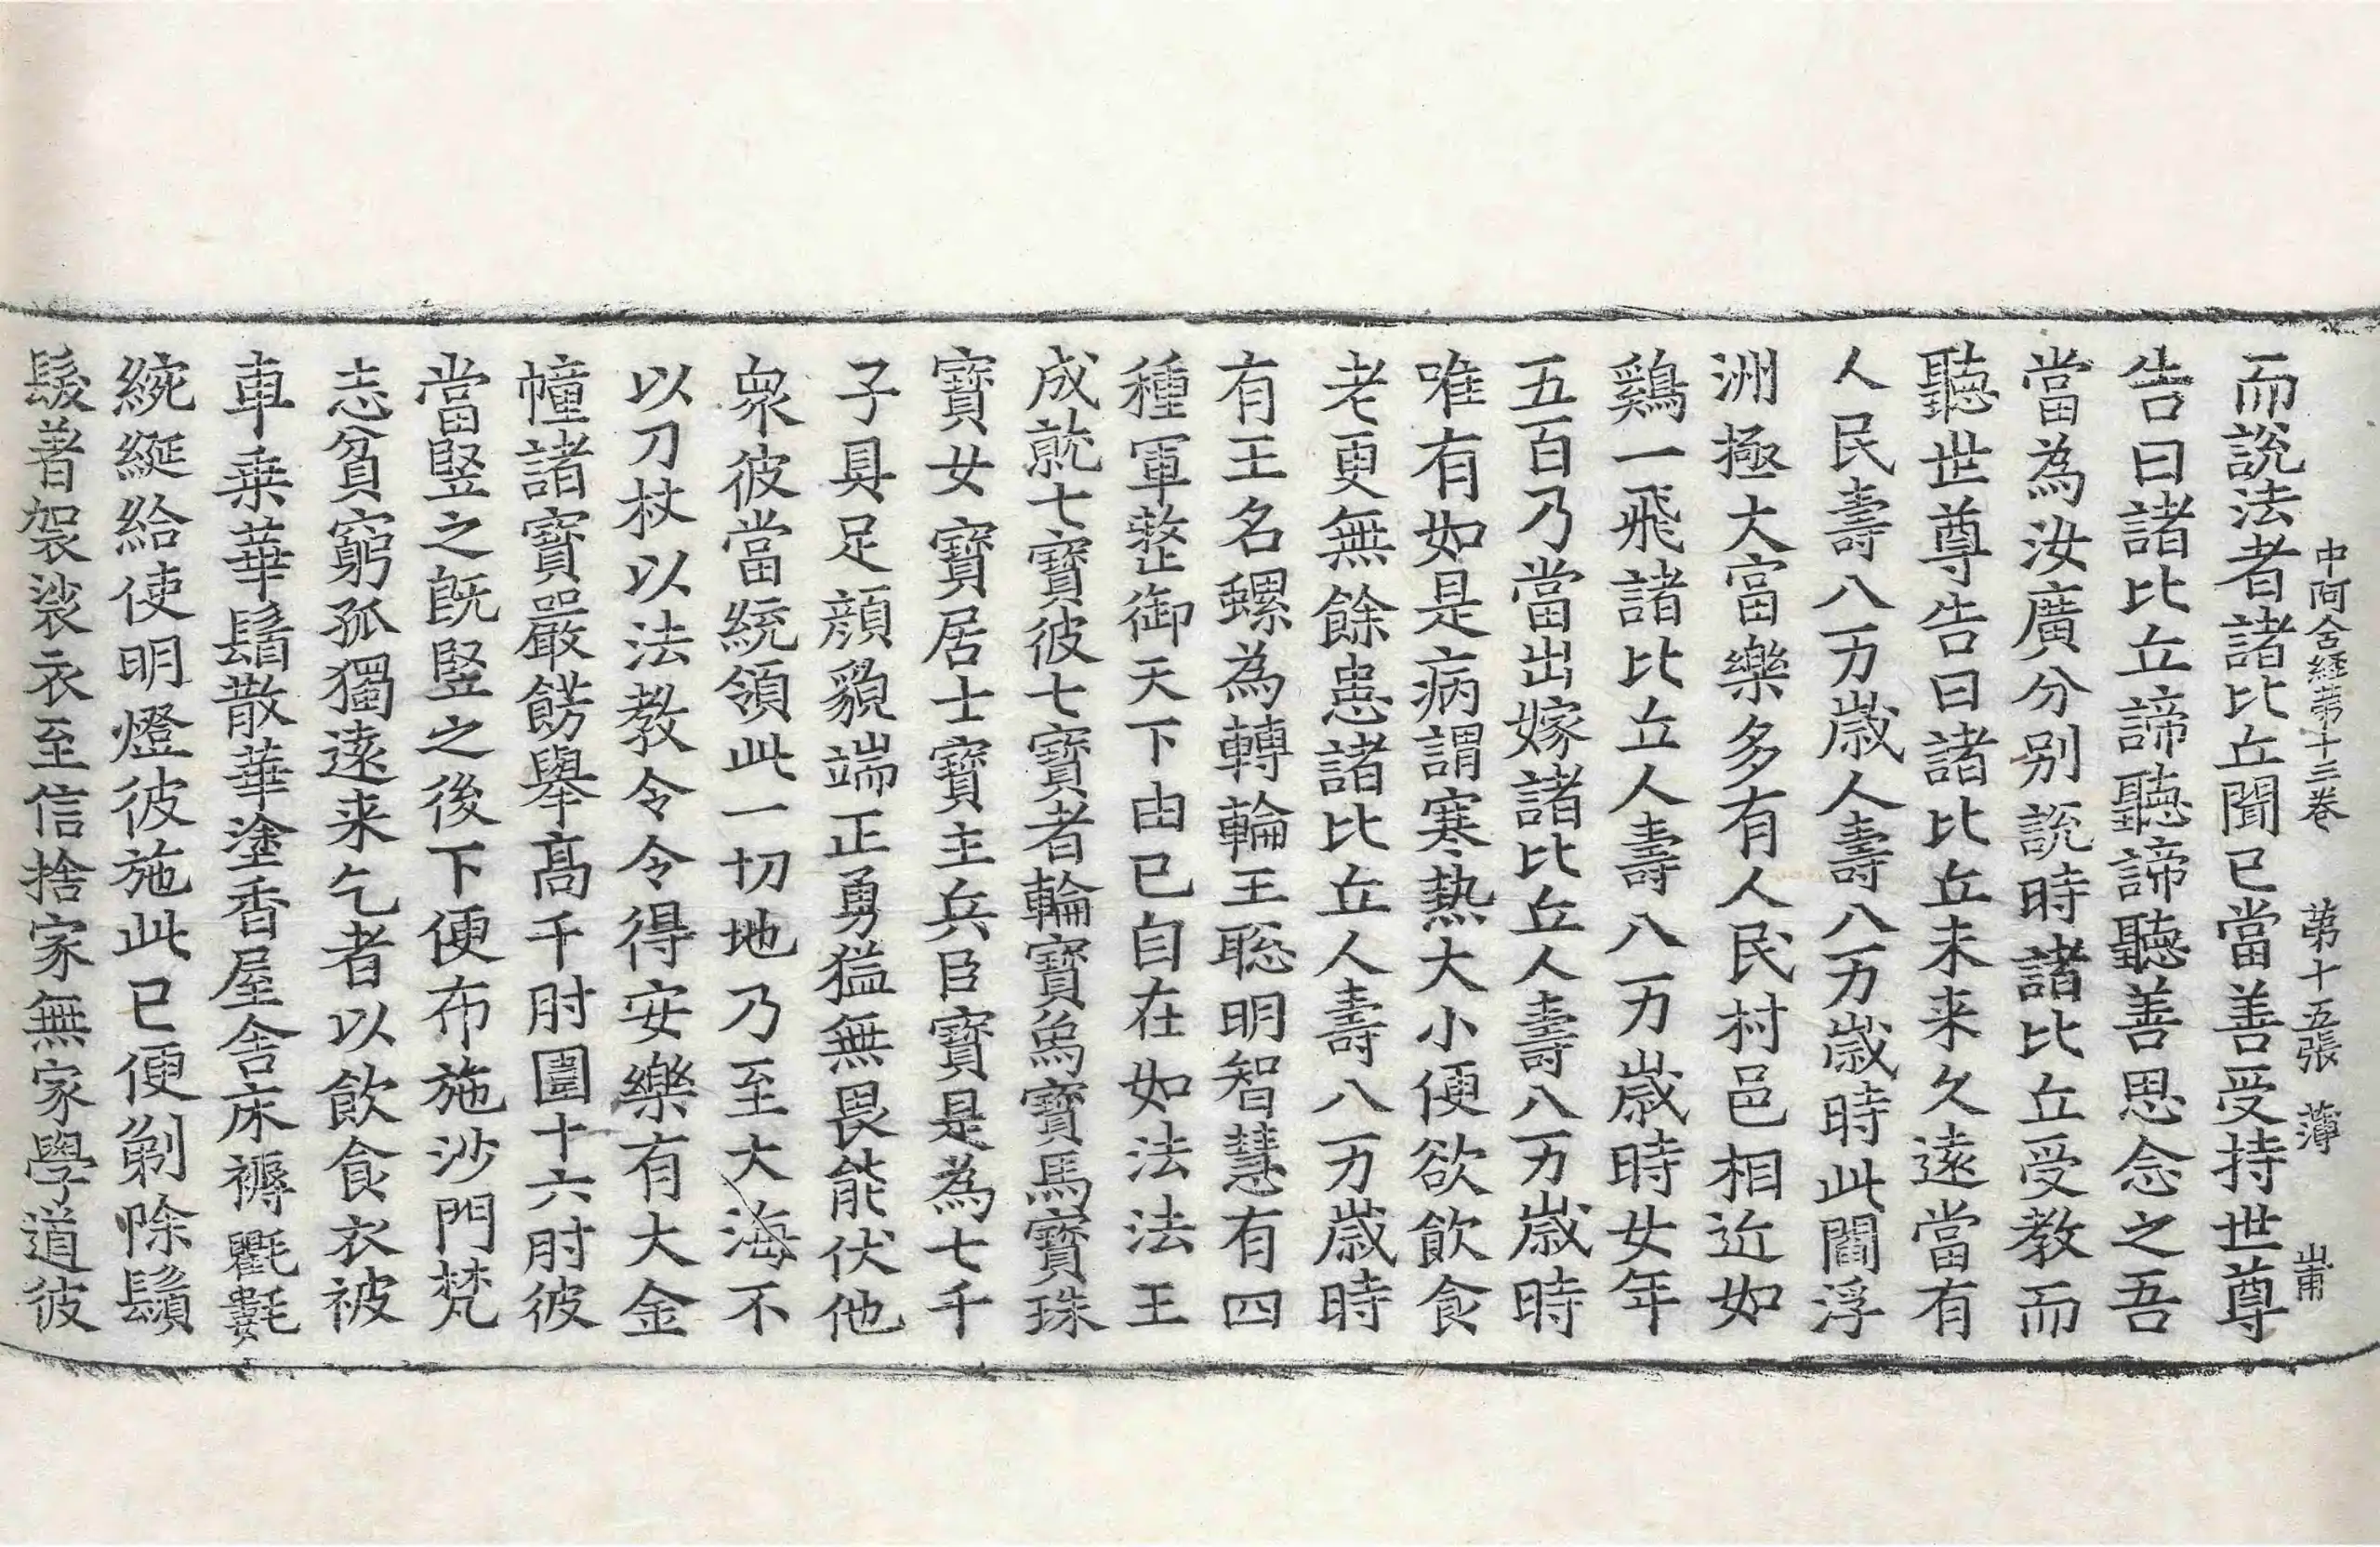 中阿含経苐十三巻 苐十五張 薄 岀甫
而說法者諸比丘聞已當善受持世尊
告曰諸比丘諦聽諦聽善思念之吾
當為汝廣分別說時諸比丘受教而
聽世尊告曰諸比丘未来久遠當有
人民壽八万歳人壽八万歳時此閻浮
洲極大富樂多有人民村邑相近如
鷄一飛諸比丘人壽八万歳時女年
五百乃當出嫁諸比丘人壽八万歳時
唯有如是病謂寒熱大小便欲飲食
老更無餘患諸比丘人壽八万歳時
有王名螺為轉輪王聡明智慧有四
種軍整御天下由已自在如法法王
成就七寶彼七寶者輪寶象寶馬寶珠
寶女寶居士寶主兵臣寶是為七千
子具足顔貌端正勇猛無畏能伏他
衆彼當統領此一切地乃至大海不
以刀杖以法教令令得安樂有大金
幢諸寶嚴餝舉髙千肘圍十六肘彼
當竪之旣竪之後下便布施沙門梵
志貧窮孤獨遠来乞者以飲食衣被
車乗華鬘散華塗香屋舍床褥氍㲣
綩綖給使明燈彼施此已便剃除鬚
髮著袈裟衣至信捨家無家學道彼